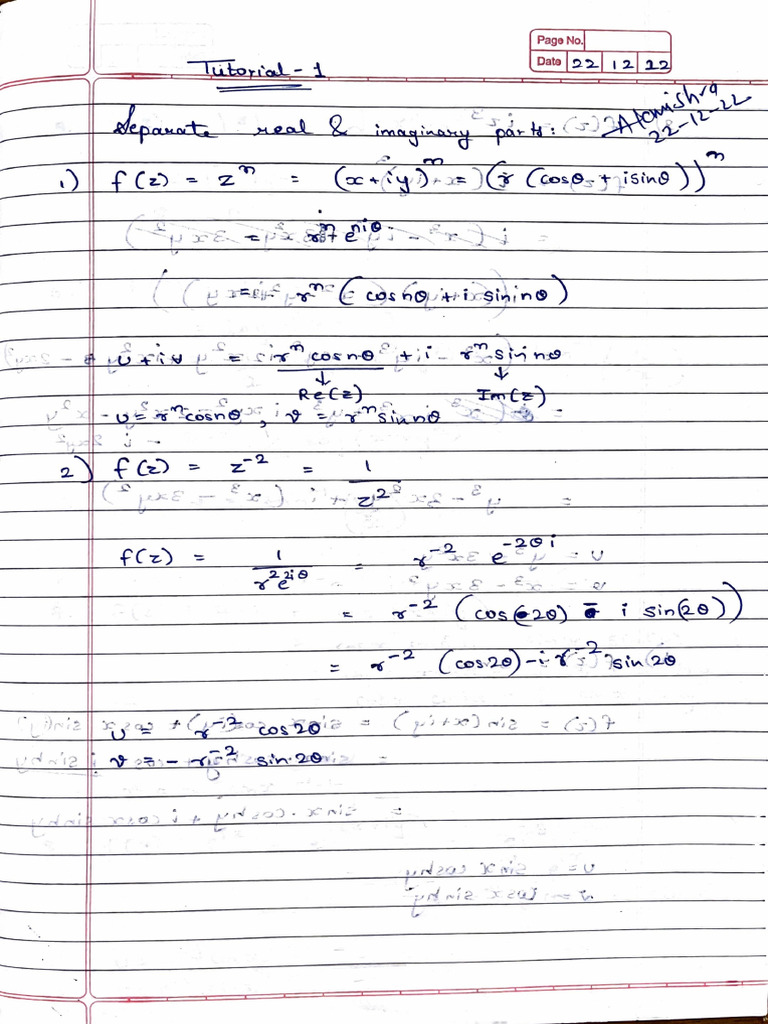 Page No.
Tutorial - 1
Date 22 12 22
Separate real & imaginary parts:
22-12-22
1) f(z) = zⁿ = (x+iy)ⁿ = (r (cosθ + isinθ))ⁿ
= rⁿ e^{niθ}
= rⁿ (cosnθ + i sin nθ)
u + iv = rⁿcosnθ + i rⁿsin nθ
Re(z) Im(z)
u = rⁿcosnθ, v = rⁿsin nθ
2) f(z) = z⁻² = 1/z²
f(z) = 1/r²e^{2iθ} = r⁻² e^{-2θi}
= r⁻² (cos(2θ) - i sin(2θ))
= r⁻² (cos2θ) - i r⁻² sin 2θ
u = r⁻² cos2θ
v = - r⁻² sin 2θ